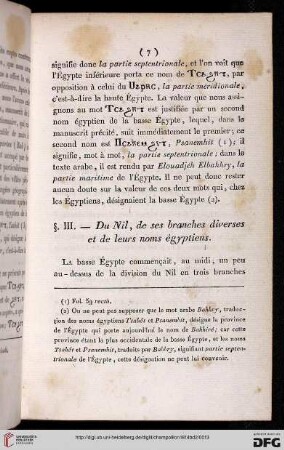 ( 7 )
signifie donc la partie septentrionale, et l'on voit que
l'Égypte inférieure porta ce nom de Ⲧⲥⲁϩⲏⲧ, par
opposition à celui du Ⲙⲁⲣⲏⲥ, la partie méridionale,
c'est-à-dire la haute Égypte. La valeur que nous assi-
gnons au mot Ⲧⲥⲁϩⲏⲧ est justifiée par un second
nom égyptien de la basse Égypte, lequel, dans le
manuscrit précité, suit immédiatement le premier; ce
second nom est Psanemhit (1); il
signifie, mot à mot, la partie septentrionale; dans le
texte arabe, il est rendu par Elouadjeh Elbahhry, la
partie maritime de l'Égypte. Il ne peut donc rester
aucun doute sur la valeur de ces deux mots qui, chez
les Égyptiens, désignaient la basse Égypte (2).
§. III. — Du Nil, de ses branches diverses
et de leurs noms égyptiens.
La basse Égypte commençait, au midi, un peu
au-dessus de la division du Nil en trois branches
(1) Fol. 59 recto.
(2) On ne peut pas supposer que le mot arabe Bahhry, traduc-
tion des noms égyptiens Tsahét et Psanemhit, désigne la province
de l'Égypte qui porte aujourd'hui le nom de Bahhiré; car cette
province étant la plus occidentale de la basse Égypte, et les noms
Tsahét et Psanemhit, traduits par Bahhry, signifiant partie septen-
trionale de l'Égypte, cette désignation ne peut lui convenir.
http://digi.ub.uni-heidelberg.de/diglit/champollion1814bd2/0013
UNIVERSITÄTS-
BIBLIOTHEK
HEIDELBERG
Gefördert durch
DFG